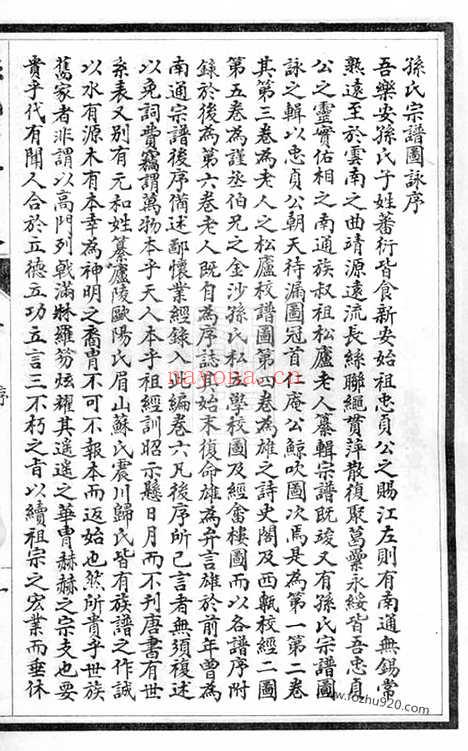 孫氏宗譜圖詠序
吾樂安孫氏子姓蕃衍皆食新安始祖忠貞公之賜江左則有南通無錫常
熟遠至於雲南之曲靖源遠流長絲聯繩貫萍散復聚葛藟永綏皆吾忠貞
公之靈實佑相之南通族叔祖松廬老人纂輯宗譜既竣又有孫氏宗譜圖
詠之輯以忠貞公朝天待漏圖冠首一庵公鯨吹圖次焉是為第一第二卷
其第三卷為老人之松廬校譜圖第四卷為雄之詩史閣及西甎校經二圖
第五卷為謹丞伯兄之金沙孫氏私立學校圖及經畬樓圖而以各譜序附
錄於後為第六卷老人既自為序誌其始末復命雄為弁言雄於前年曾為
南通宗譜後序備述鄙懷業經錄入此編卷六凡後序所已言者無須複述
以免詞費竊謂萬物本乎天人本乎祖經訓昭示懸日月而不刋唐書有世
系表又別有元和姓纂廬陵歐陽氏眉山蘇氏震川歸氏皆有族譜之作誠
以水有源木有本幸為神明之裔冑不可不報本而返始也然所貴乎世族
舊家者非謂以高門列戟滿牀羅笏炫耀其遥遥之華冑赫赫之宗支也要
貴乎代有聞人合於立德立功立言三不朽之旨以續祖宗之宏業而垂休
序
nayona.cn
www.fozhu920.com